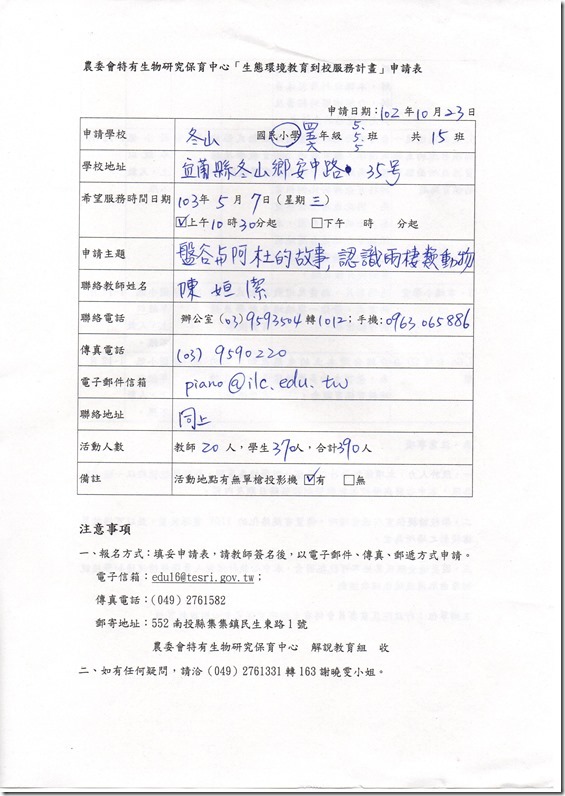 農委會特有生物研究保育中心「生態環境教育到校服務計畫」申請表
申請日期：102 年 10 月 23 日
申請學校 冬山 國民小學 四五六 年級 5.5.5 班 共 15 班
學校地址 宜蘭縣冬山鄉安中路 35号
希望服務時間日期 103 年 5 月 7 日（星期 三）
☑上午 10 時 30 分起 □下午 時 分起
申請主題 盤谷與阿杜的故事,認識兩棲類動物
聯絡教師姓名 陳姮潔
聯絡電話 辦公室 (03) 9593504 轉 1012；手機：0963 065886
傳真電話 (03) 9590220
電子郵件信箱 piano@ilc.edu.tw
聯絡地址 同上
活動人數 教師 20 人，學生 370 人，合計 390 人
備註 活動地點有無單槍投影機 ☑有 □無
注意事項
一、報名方式：填妥申請表，請教師簽名後，以電子郵件、傳真、郵遞方式申請。
電子信箱：edu16@tesri.gov.tw；
傳真電話：(049) 2761582
郵寄地址：552 南投縣集集鎮民生東路 1 號
農委會特有生物研究保育中心 解說教育組 收
二、如有任何疑問，請洽 (049) 2761331 轉 163 謝曉雯小姐。